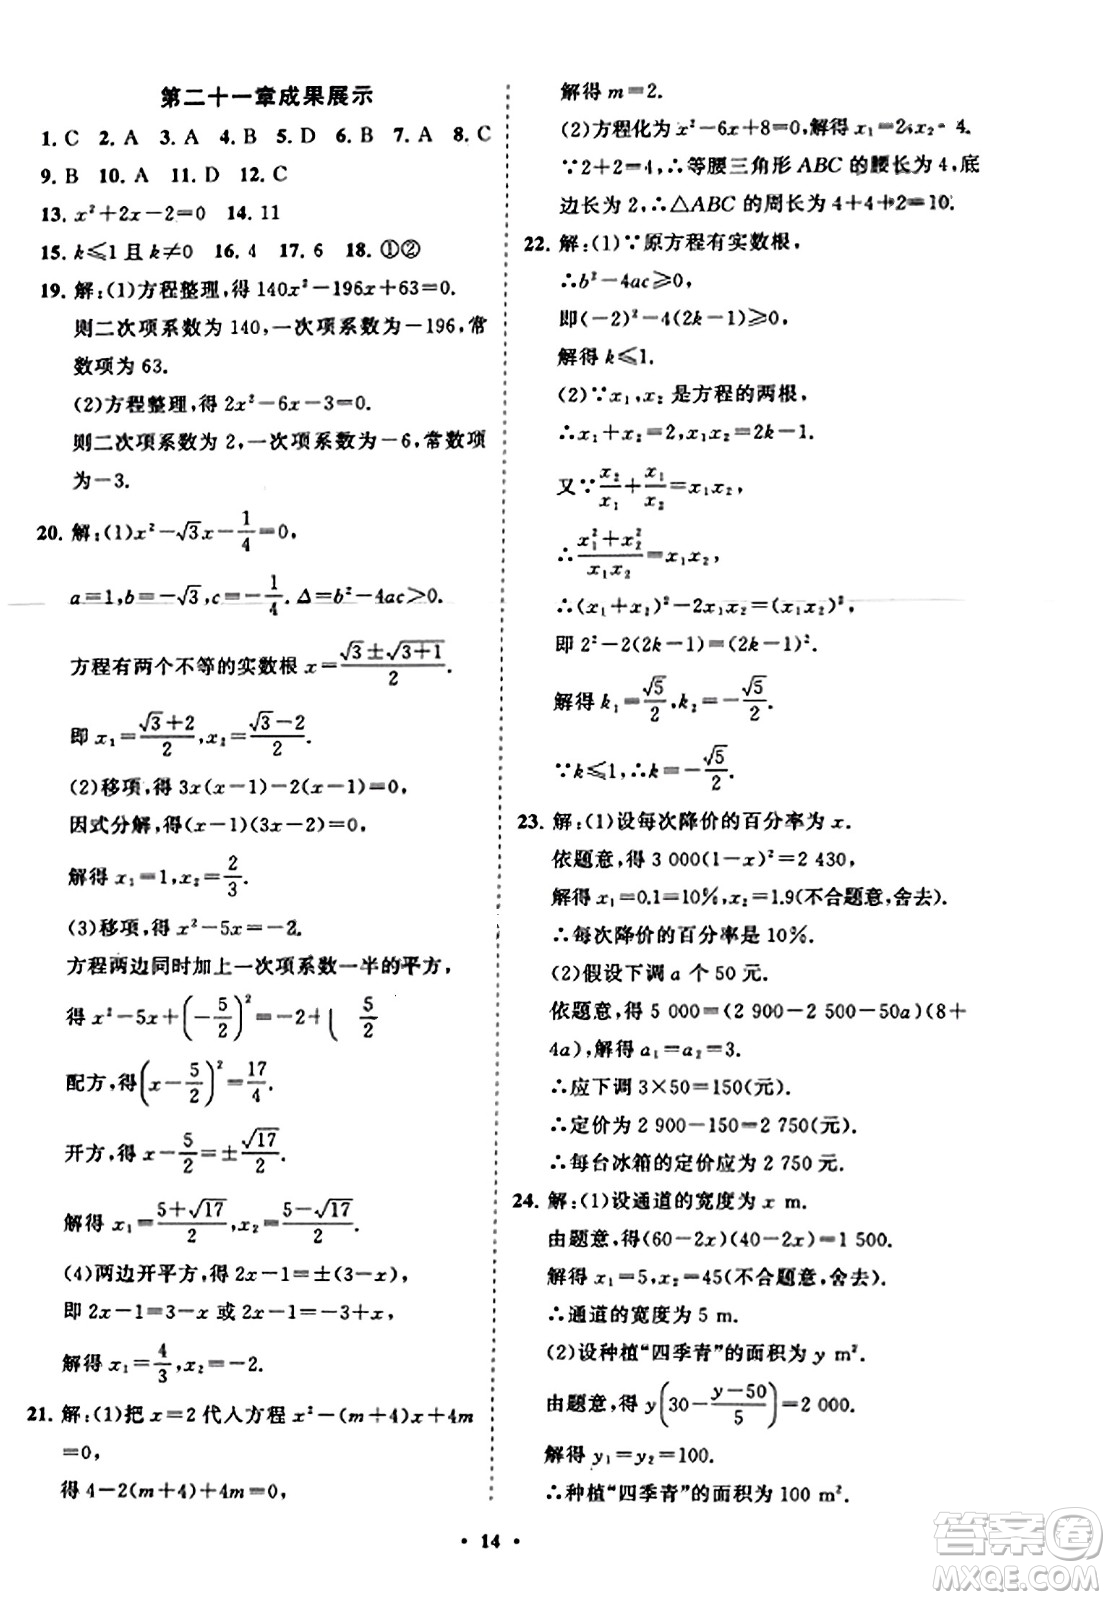 第二十一章成果展示
1. C 2. A 3. A 4. B 5. D 6. B 7. A 8. C
9. B 10. A 11. D 12. C
13. x²+2x-2=0 14. 11
15. k≤1 且 k≠0 16. 4 17. 6 18. ①②
19. 解:(1)方程整理,得 140x²-196x+63=0.
则二次项系数为 140,一次项系数为-196,常
数项为 63.
(2)方程整理,得 2x²-6x-3=0.
则二次项系数为 2,一次项系数为-6,常数项
为-3.
20. 解:(1)x²-√3x-1/4=0,
a=1,b=-√3,c=-1/4.Δ=b²-4ac>0.
方程有两个不等的实数根 x=(√3±√(3+1))/2.
即 x₁=(√3+2)/2,x₂=(√3-2)/2.
(2)移项,得 3x(x-1)-2(x-1)=0,
因式分解,得(x-1)(3x-2)=0,
解得 x₁=1,x₂=2/3.
(3)移项,得 x²-5x=-2.
方程两边同时加上一次项系数一半的平方,
得 x²-5x+(-5/2)²=-2+( 5/2
配方,得(x-5/2)²=17/4.
开方,得 x-5/2=±√17/2.
解得 x₁=(5+√17)/2,x₂=(5-√17)/2.
(4)两边开平方,得 2x-1=±(3-x),
即 2x-1=3-x 或 2x-1=-3+x,
解得 x₁=4/3,x₂=-2.
21. 解:(1)把 x=2 代人方程 x²-(m+4)x+4m
=0,
得 4-2(m+4)+4m=0,
解得 m=2.
(2)方程化为 x²-6x+8=0,解得 x₁=2,x₂=4.
∵2+2=4,∴等腰三角形 ABC 的腰长为 4,底
边长为 2,∴△ABC 的周长为 4+4+2=10.
22. 解:(1)∵原方程有实数根,
∴b²-4ac≥0,
即(-2)²-4(2k-1)≥0,
解得 k≤1.
(2)∵x₁,x₂ 是方程的两根,
∴x₁+x₂=2,x₁x₂=2k-1.
又∵x₂/x₁+x₁/x₂=x₁x₂,
∴(x₁²+x₂²)/(x₁x₂)=x₁x₂,
∴(x₁+x₂)²-2x₁x₂=(x₁x₂)²,
即 2²-2(2k-1)=(2k-1)².
解得 k₁=√5/2,k₂=-√5/2.
∵k≤1,∴k=-√5/2.
23. 解:(1)设每次降价的百分率为 x.
依题意,得 3 000(1-x)²=2 430,
解得 x₁=0.1=10%,x₂=1.9(不合题意,舍去).
∴每次降价的百分率是 10%.
(2)假设下调 a 个 50 元.
依题意,得 5 000=(2 900-2 500-50a)(8+
4a),解得 a₁=a₂=3.
∴应下调 3×50=150(元).
∴定价为 2 900-150=2 750(元).
∴每台冰箱的定价应为 2 750 元.
24. 解:(1)设通道的宽度为 x m.
由题意,得(60-2x)(40-2x)=1 500,
解得 x₁=5,x₂=45(不合题意,舍去).
∴通道的宽度为 5 m.
(2)设种植“四季青”的面积为 y m².
由题意,得 y(30-(y-50)/5)=2 000,
解得 y₁=y₂=100.
∴种植“四季青”的面积为 100 m².
• 14 •
答案圈
MXQE.COM